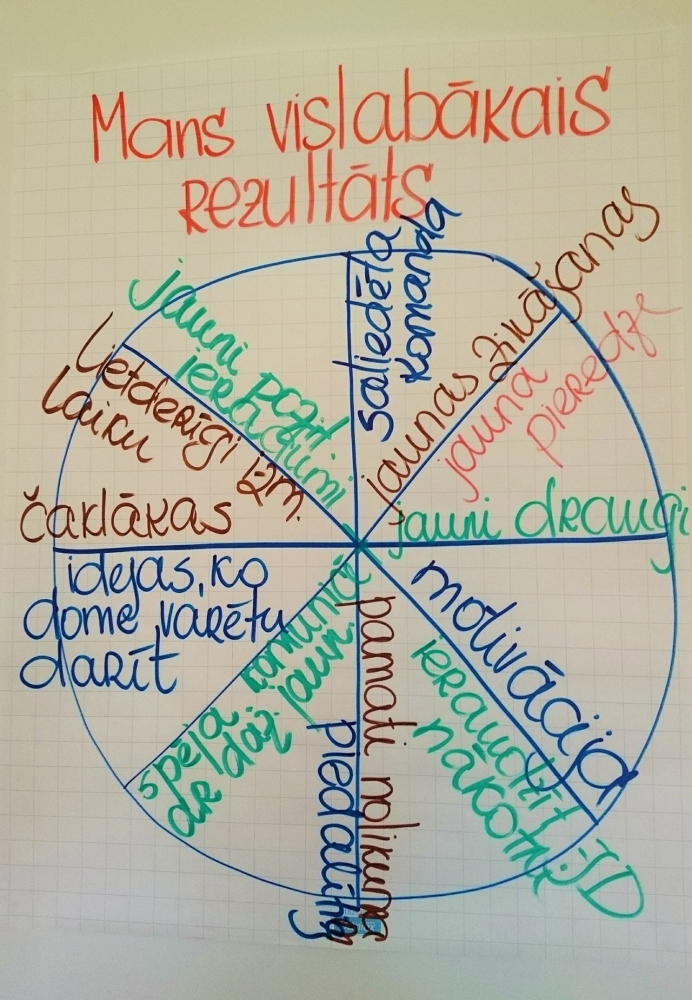 Mans vislabākais
rezultāts
saliedēta
komanda
jaunas zināšanas
jauna
pieredze
jauni draugi
motivācija
ieraudzīt JD
nākotni
pamati nolikuma
piedalīties
spēja komunicēt
ar daž. jaun.
idejas, ko
dome varētu
darīt
čaklākas
Lietderīgi izm.
laiku
jauni pozit
ieradumi